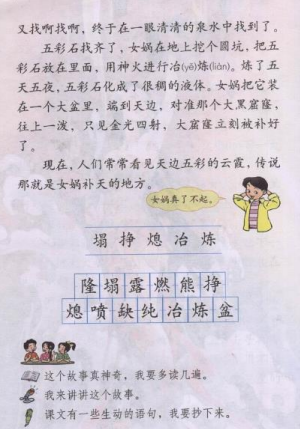 又找啊找啊，终于在一眼清清的泉水中找到了。
五彩石找齐了，女娲在地上挖个圆坑，把五
彩石放在里面，用神火进行冶(yě)炼(liàn)。炼了五
天五夜，五彩石化成了很稠的液体。女娲把它装
在一个大盆里，端到天边，对准那个大黑窟窿，
往上一泼，只见金光四射，大窟窿立刻被补好
了。
现在，人们常常看见天边五彩的云霞，传说
那就是女娲补天的地方。
女娲真了不起。
塌 挣 熄 冶 炼
隆 塌 露 燃 熊 挣
熄 喷 缺 纯 冶 炼 盆
这个故事真神奇，我要多读几遍。
我来讲讲这个故事。
课文有一些生动的语句，我要抄下来。